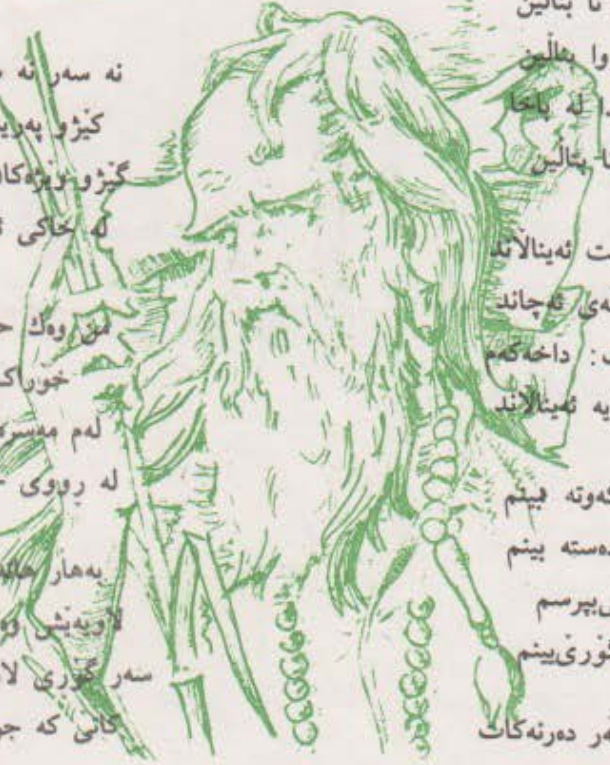 تا بنالین
وا بنالین
لە باخا
تا بنالین
ت ئەیناڵاند
ەی ئەچاند
: داخەکەم
یە ئەیناڵاند
کەوتە بینم
دەستە بینم
بپرسم
گۆڕێ بینم
ەر دەرنەکات
نە سەر نە
کێژو پەری
گێژو وێژەکا
لە خاکی ئ
من وەك ح
خۆراک
لەم مەسر
لە ڕووی
بەهار هات
لاوێش وە
سەر گۆڕی لا
کانی کە جۆ